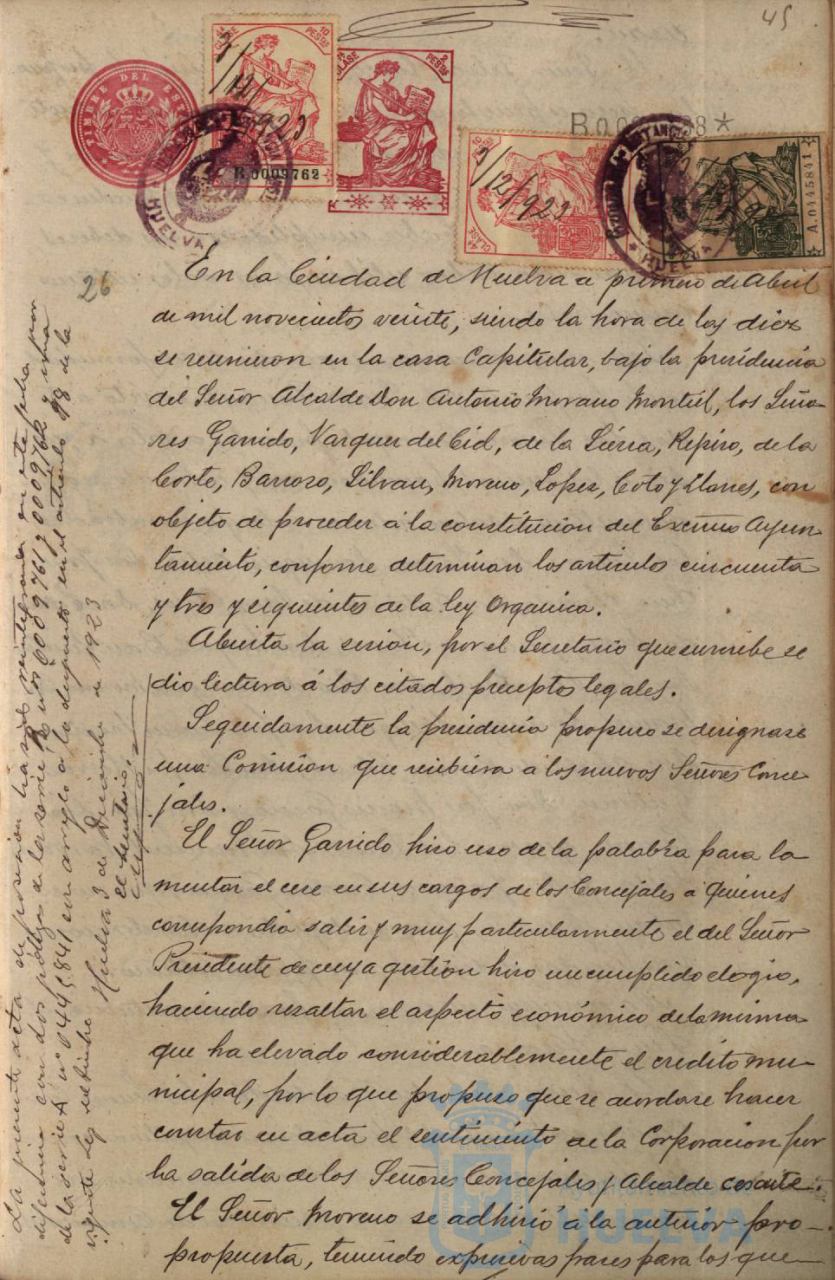 45
TIMBRE DEL ESTADO
4ª CLASE
10 PESETAS
3/12/1923
B.0009762
HUELVA
3/12/923
4ª CLASE
A.0445841
HUELVA
26
En la Ciudad de Huelva a primero de Abril
de mil novecientos veinte, siendo la hora de las diez
se reunieron en la casa Capitular, bajo la presidencia
del Señor Alcalde Don Antonio Morano Montiel, los Seño-
res Garrido, Vazquez del Cid, de la Sierra, Repiso, de la
Corte, Barroso, Silvan, Moreno, Lopez, Coto y Llanes, con
objeto de proceder á la constitucion del Excmo Ayun-
tamiento, conforme determinan los articulos cincuenta
y tres y siguientes de la ley Organica.
Abierta la sesion, por el Secretario que suscribe se
dio lectura á los citados preceptos legales.
Seguidamente la presidencia propuso se designase
una Comision que recibiera a los nuevos Señores Conce-
jales.
El Señor Garrido hizo uso de la palabra para la
mentar el cese en sus cargos de los Concejales a quienes
correspondia salir y muy particularmente el del Señor
Presidente de cuya gestión hizo un cumplido elogio,
haciendo resaltar el aspecto económico de la misma
que ha elevado considerablemente el credito mu-
nicipal, por lo que propuso que se acordase hacer
constar en acta el sentimiento de la Corporacion por
la salida de los Señores Concejales y Alcalde cesante.
El Señor Moreno se adhirió á la anterior pro-
propuesta, teniendo expresivas frases para los que
La presente acta de posesion ha sido reintegrada en este pliego por
diligencia con dos pólizas de la serie B nos 0009761 y 0009762 y una
de la serie A nº 0445841 con arreglo a lo dispuesto en el artículo 98 de la
vigente Ley del timbre Huelva 3 de Diciembre de 1923
El Secretario,
HUELVA